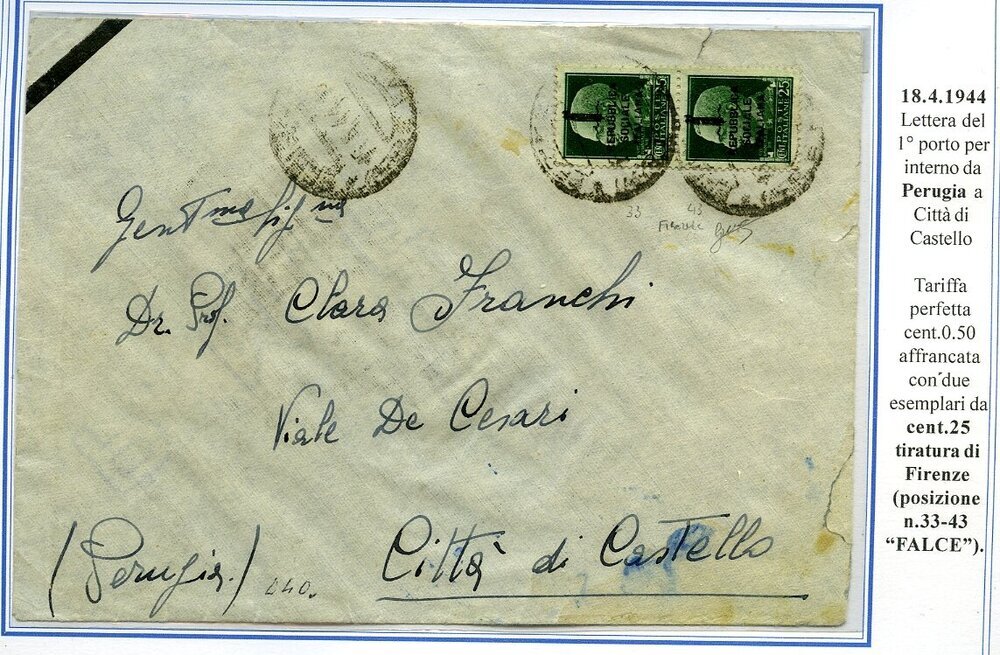 Gent.ma Sig.na
Dr. Prof. Clara Franchi
Viale De Cesari
Città di Castello
(Perugia.)
240.
33 43
Firenze
25
REPUBBLICA
SOCIALE
ITALIANA
POSTE
ITALIANE
25
REPUBBLICA
SOCIALE
ITALIANA
POSTE
ITALIANE
18.4.1944
Lettera del
1° porto per
interno da
Perugia a
Città di
Castello
Tariffa
perfetta
cent.0.50
affrancata
con due
esemplari da
cent.25
tiratura di
Firenze
(posizione
n.33-43
“FALCE”).